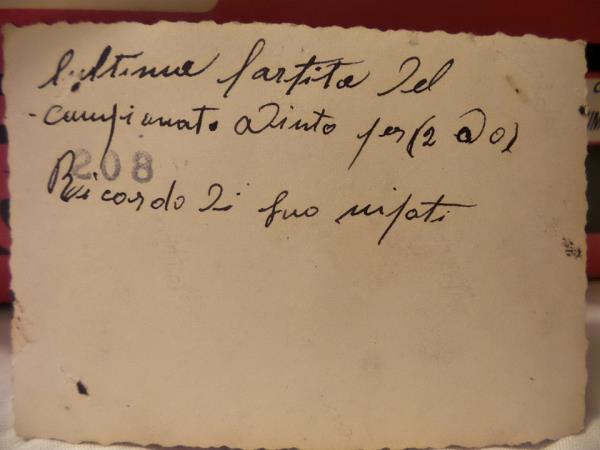 l'ultima Partita del
campionato Vinto per (2 a 0)
208
Ricordo di suo nipoti